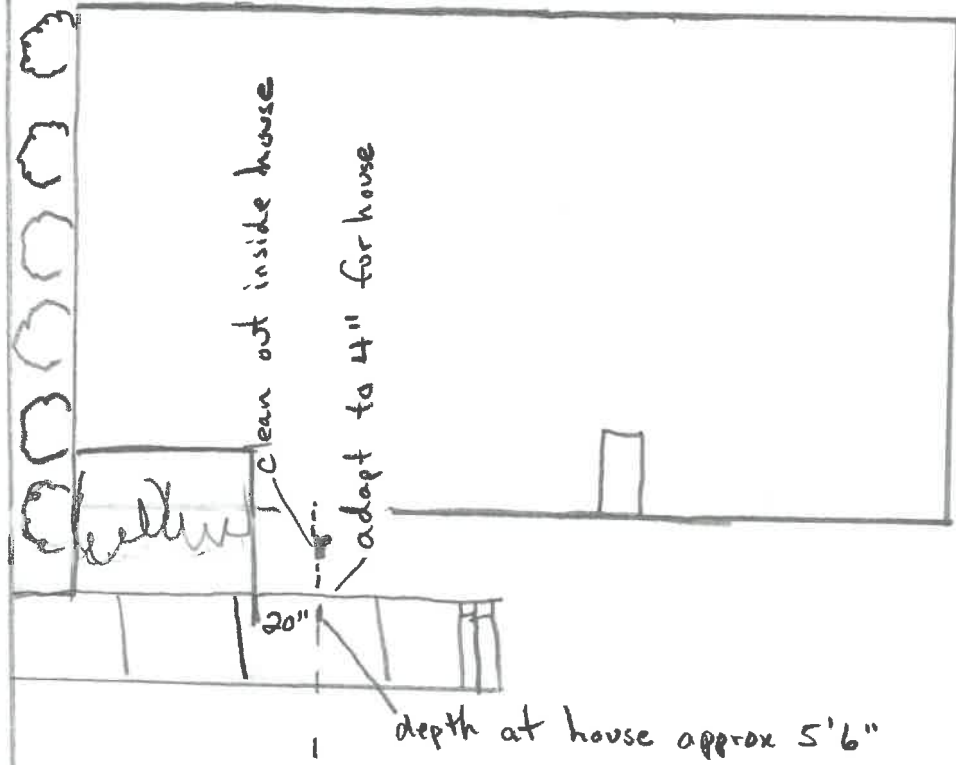 clean out inside house
adapt to 4" for house
20"
depth at house approx 5'6"